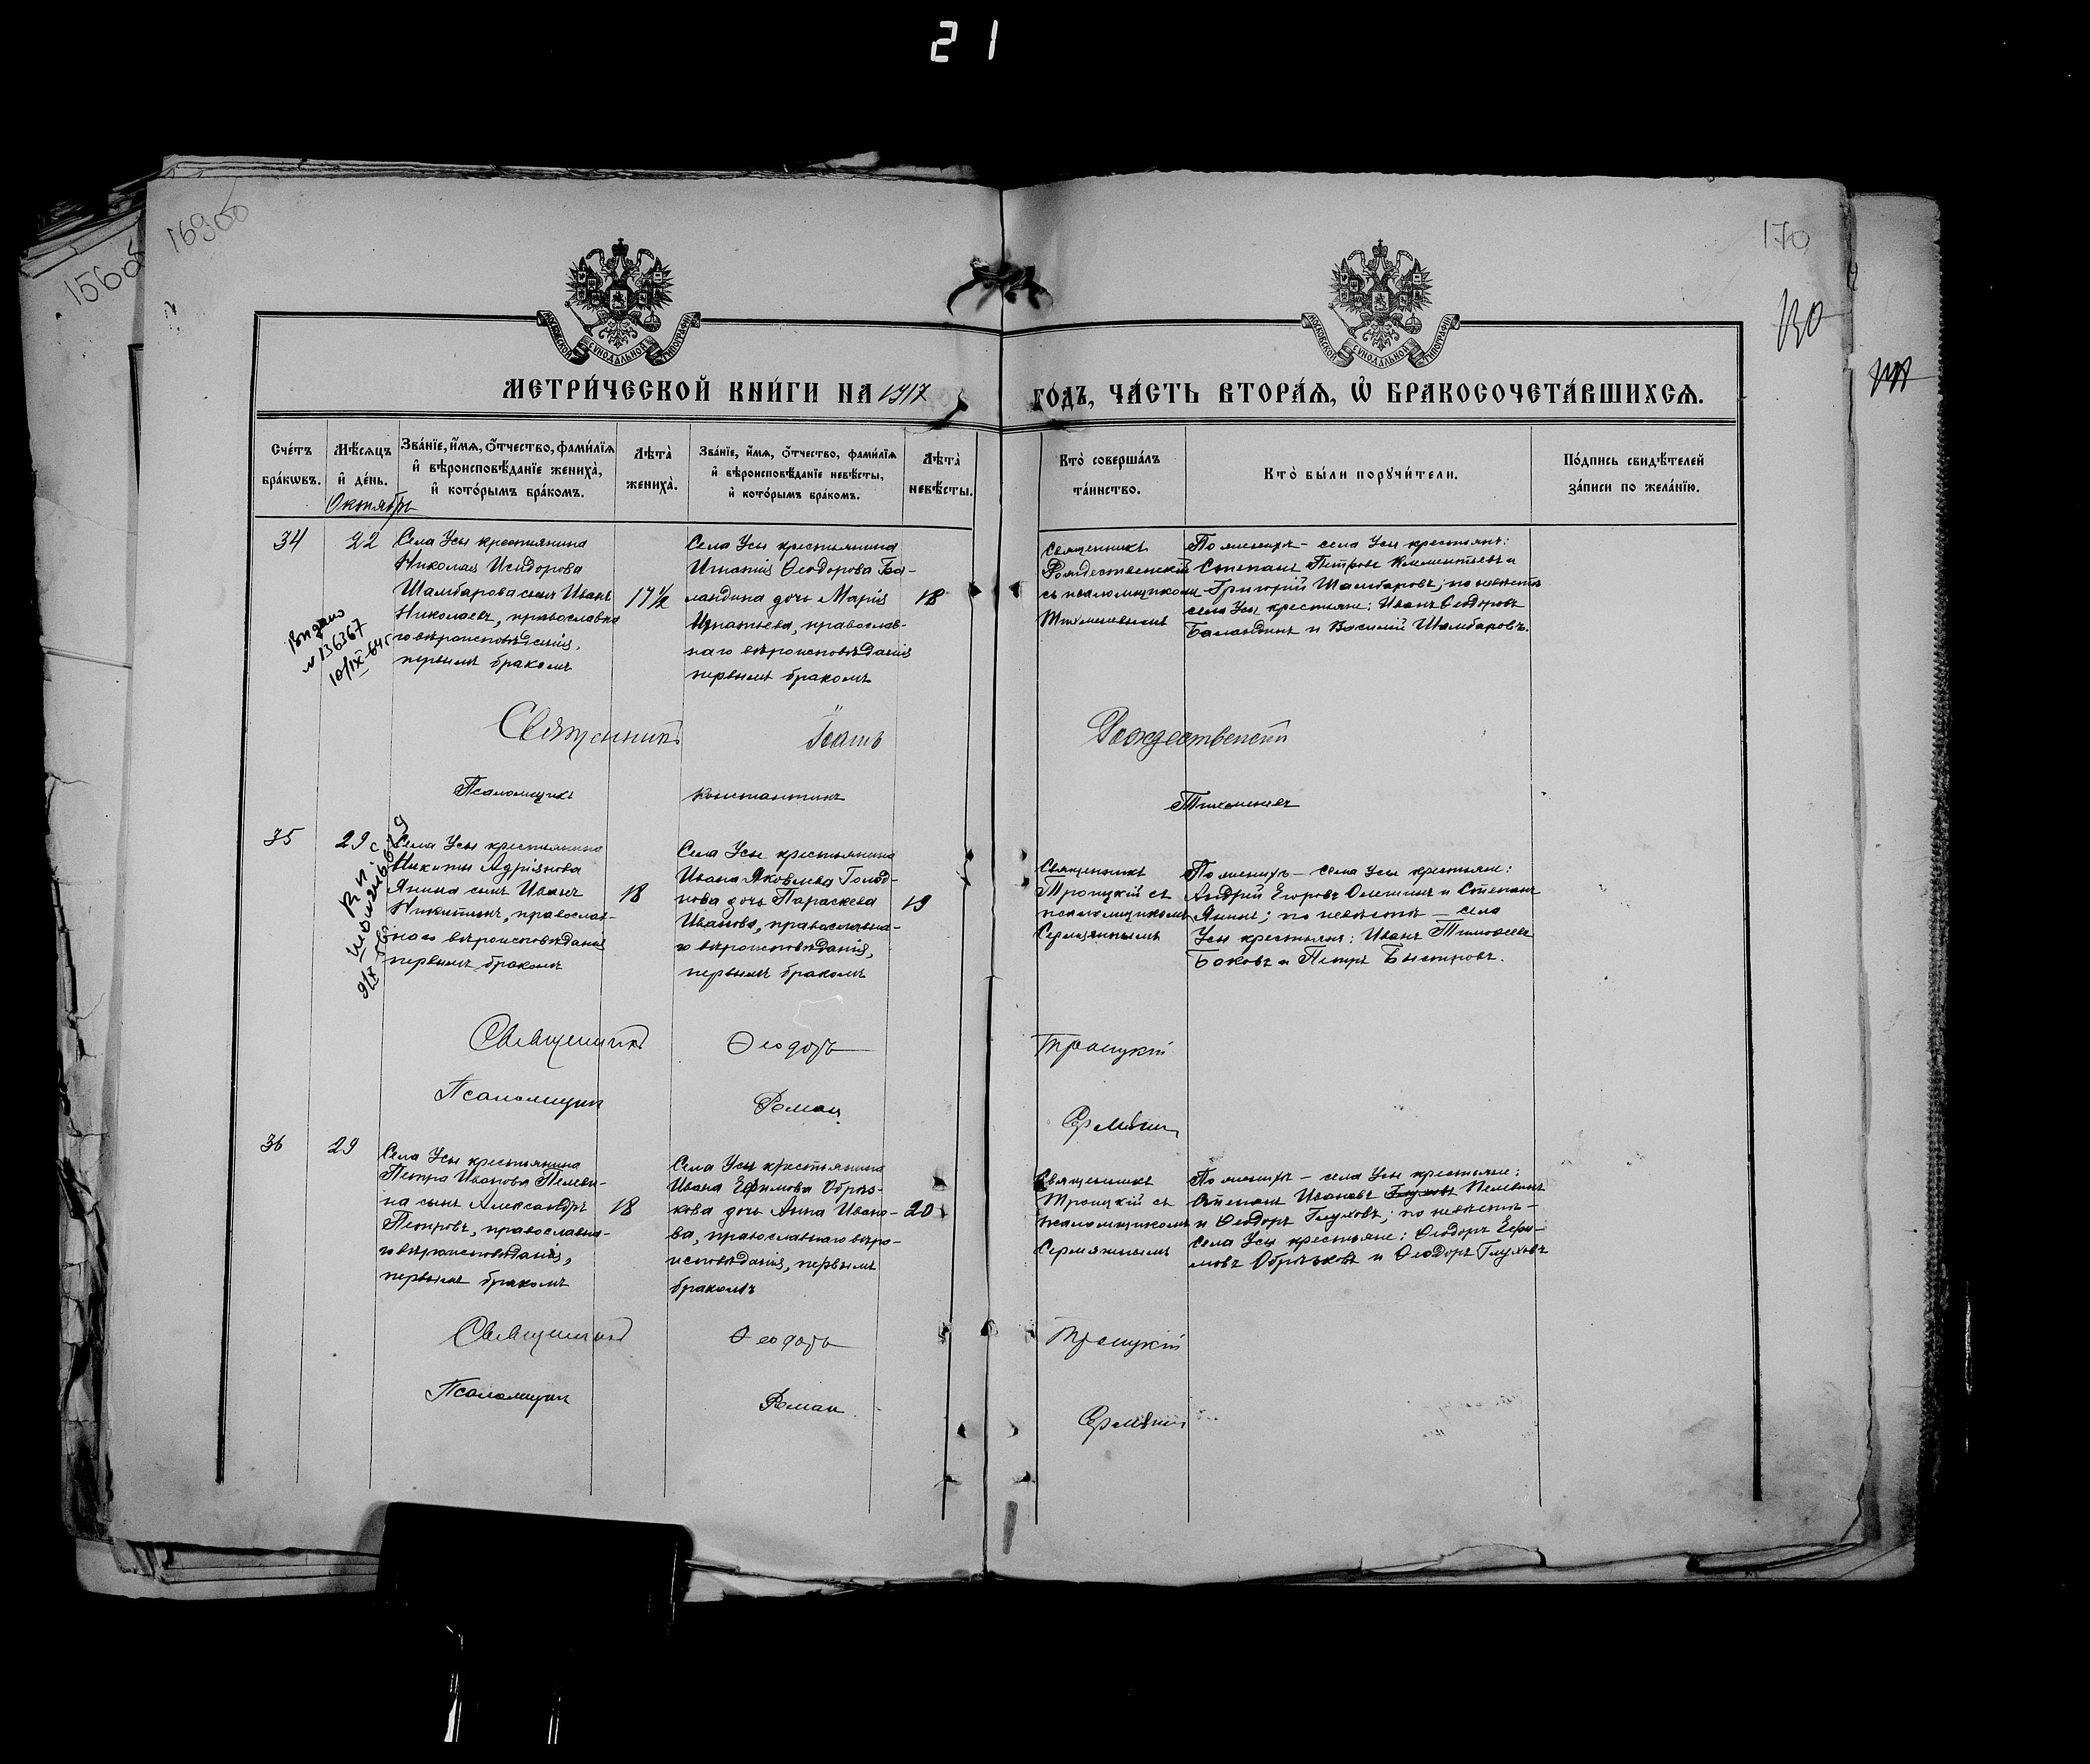 21
169об
156об
170
130
МОСКОВСКОЙ СѴНОДАЛЬНОЙ ТИПОГРАФІИ
МОСКОВСКОЙ СѴНОДАЛЬНОЙ ТИПОГРАФІИ
МЕТРИ́ЧЕСКОЙ КНИ́ГИ НА 1917 ГО́ДЪ, ЧА́СТЬ ВТОРА́Ѧ, Ѡ҆ БРАКОСОЧЕТА́ВШИХСѦ.
Сче́тъ
бра́кѡвъ.
Мѣ́сѧцъ
и҆ де́нь.
Октябрь
Зва́нїе, и҆́мѧ, ѻ҆́тчество, фами́лїѧ
и҆ вѣроисповѣ́данїе жениха̀,
и҆ кото́рымъ бра́комъ.
Лѣта̀
жениха̀.
Зва́нїе, и҆́мѧ, ѻ҆́тчество, фами́лїѧ
и҆ вѣроисповѣ́данїе невѣ́сты,
и҆ кото́рымъ бра́комъ.
Лѣта̀
невѣ́сты.
Кто̀ соверша́лъ
та́инство.
Кто̀ бы́ли порꙋчи́тели.
По́дпись свидѣ́телей
за́писи по жела́нїю.
34
22
Села Усы крестьянина
Николая Исидорова
Шамбарова сынъ Иванъ
Николаевъ, православна
го вѣроисповѣданія,
первымъ бракомъ
17½
Села Усы крестьянина
Игнатія Ѳеодорова Ба-
ландина дочь Марія
Игнатьева, православ-
наго вѣроисповѣданія
первымъ бракомъ
18
Священникъ
Рождественскій
съ псаломщикомъ
Тихменевымъ
По женихѣ – села Усы крестьяне:
Степанъ Петровъ Клементьевъ и
Григорій Шамбаровъ; по невѣстѣ
села Усы крестьяне: Иванъ Ѳеодоровъ
Баландинъ и Василій Шамбаровъ.
Выдано
№ 136367
10/IX-64г
Священникъ Іоаннъ Рождественскій
Псаломщикъ Константинъ Тихменевъ
35
29
Села Усы крестьянина
Никиты Адріянова
Янина сынъ Иванъ
Никитинъ, православ-
наго вѣроисповѣданія
первымъ бракомъ
18
Села Усы крестьянина
Ивана Яковлева Голод-
нова дочь Параскева
Иванова, православна-
го вѣроисповѣданія,
первымъ бракомъ
19
Священникъ
Троицкій съ
псаломщикомъ
Сермяжнымъ
По женихѣ – села Усы крестьяне:
Андрей Егоровъ Олешинъ и Степанъ
Янинъ; по невѣстѣ – села
Усы крестьяне: Иванъ Тимоѳеевъ
Боковъ и Петръ Быстровъ.
Священникъ Ѳеодоръ Троицкій
Псаломщикъ Роман
36
29
Села Усы крестьянина
Петра Иванова Пелеви-
на сынъ Александръ
Петровъ, православна-
го вѣроисповѣданія,
первымъ бракомъ
18
Села Усы крестьянина
Ивана Ефимова Обрѣз-
кова дочь Анна Ивано-
ва, православнаго вѣро-
исповѣданія, первымъ
бракомъ
20
Священникъ
Троицкій съ
псаломщикомъ
Сермяжнымъ
По женихѣ – села Усы крестьяне:
Степанъ Ивановъ Глуховъ Пелевинъ
и Ѳеодоръ Глуховъ; по невѣстѣ –
села Усы крестьяне: Ѳеодоръ Ефи-
мовъ Обрѣзковъ и Ѳеодоръ Глуховъ
Священникъ Ѳеодоръ Троицкій
Псаломщикъ Роман